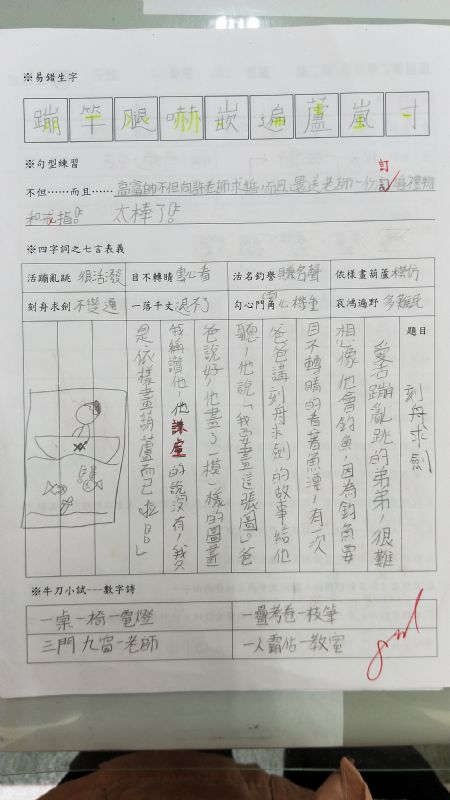 ※易錯生字
蹦 竿 腿 嚇 嵌 遍 蘆 嵐 寸
※句型練習
不但……而且…… 高富帥不但向許老師求婚,而且還送老師一份訂婚禮物
和戒指! 太棒了!
※四字詞之七言表義
活蹦亂跳 很活潑 目不轉睛 專心看 活名釣譽 賺名聲 依樣畫葫蘆 模仿
刻舟求劍 不變通 一落千丈 退不了 勾心鬥角 心機重 哀鴻遍野 多難民
題目
刻舟求劍
愛活蹦亂跳的弟弟,很難
想像他會釣魚,因為釣魚要
目不轉睛的看著魚漂,有次
爸爸講刻舟求劍的故事,給他
聽,他說「我要畫這張圖」爸
爸說好,他畫了一模一樣的圖畫
我稱讚他,他謙虛的說沒有,我只
是依樣畫葫蘆而已啦!」
※牛刀小試---數字詩
一桌一椅一電燈 一疊考卷一枝筆
三門九窗一老師 一人霸佔一教室